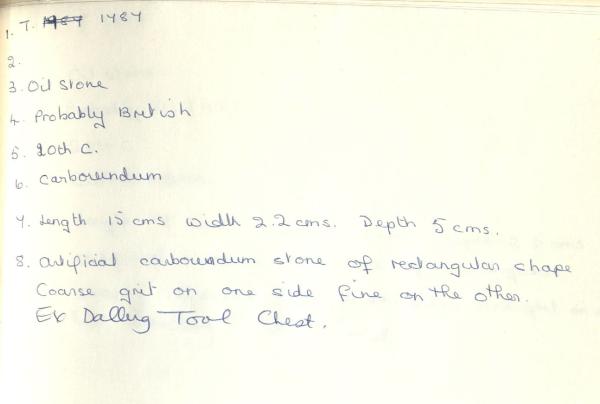 1. T. 1787
2.
3. Oil stone
4. Probably British
5. 20th C.
6. Carborundum
7. Length 15 cms width 2.2 cms. Depth 5 cms.
8. Artificial carborundum stone of rectangular shape
Coarse grit on one side fine on the other.
Ex Dalling Tool Chest.